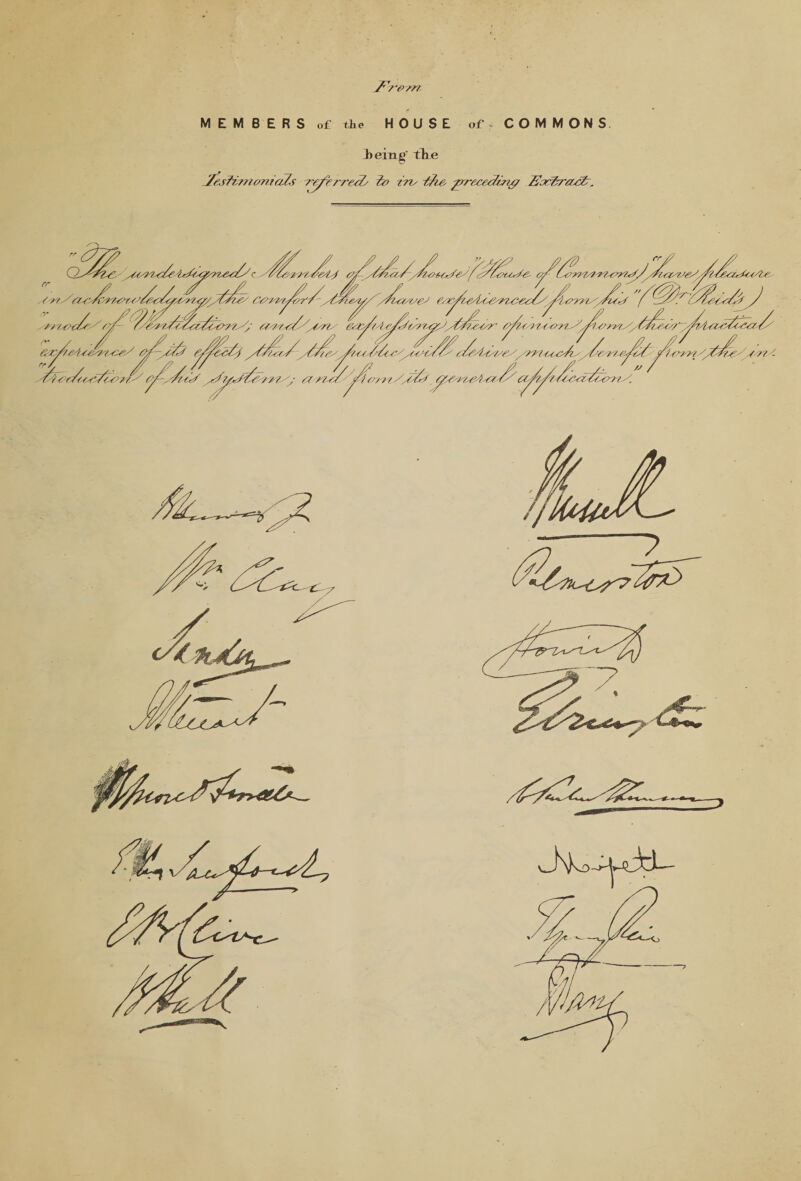 From
MEMBERS of the HOUSE of COMMONS.
being the
Testimonials referred to in the preceding Extract.
"The undersigned Members of that house" (House of Commons) "have pleasure
"in acknowledging the comfort they have experienced from his" (Dr. Reid's)
"mode of Ventilation; and in expressing their opinion from their practical
"experience of its effects that the public will derive much benefit from the in-
"troduction of his System; and from its general application."
Russell
Wm. Clay
Palmerston
Sandon
Howick
Ebrington
Morpeth
E B Clive
B Hall